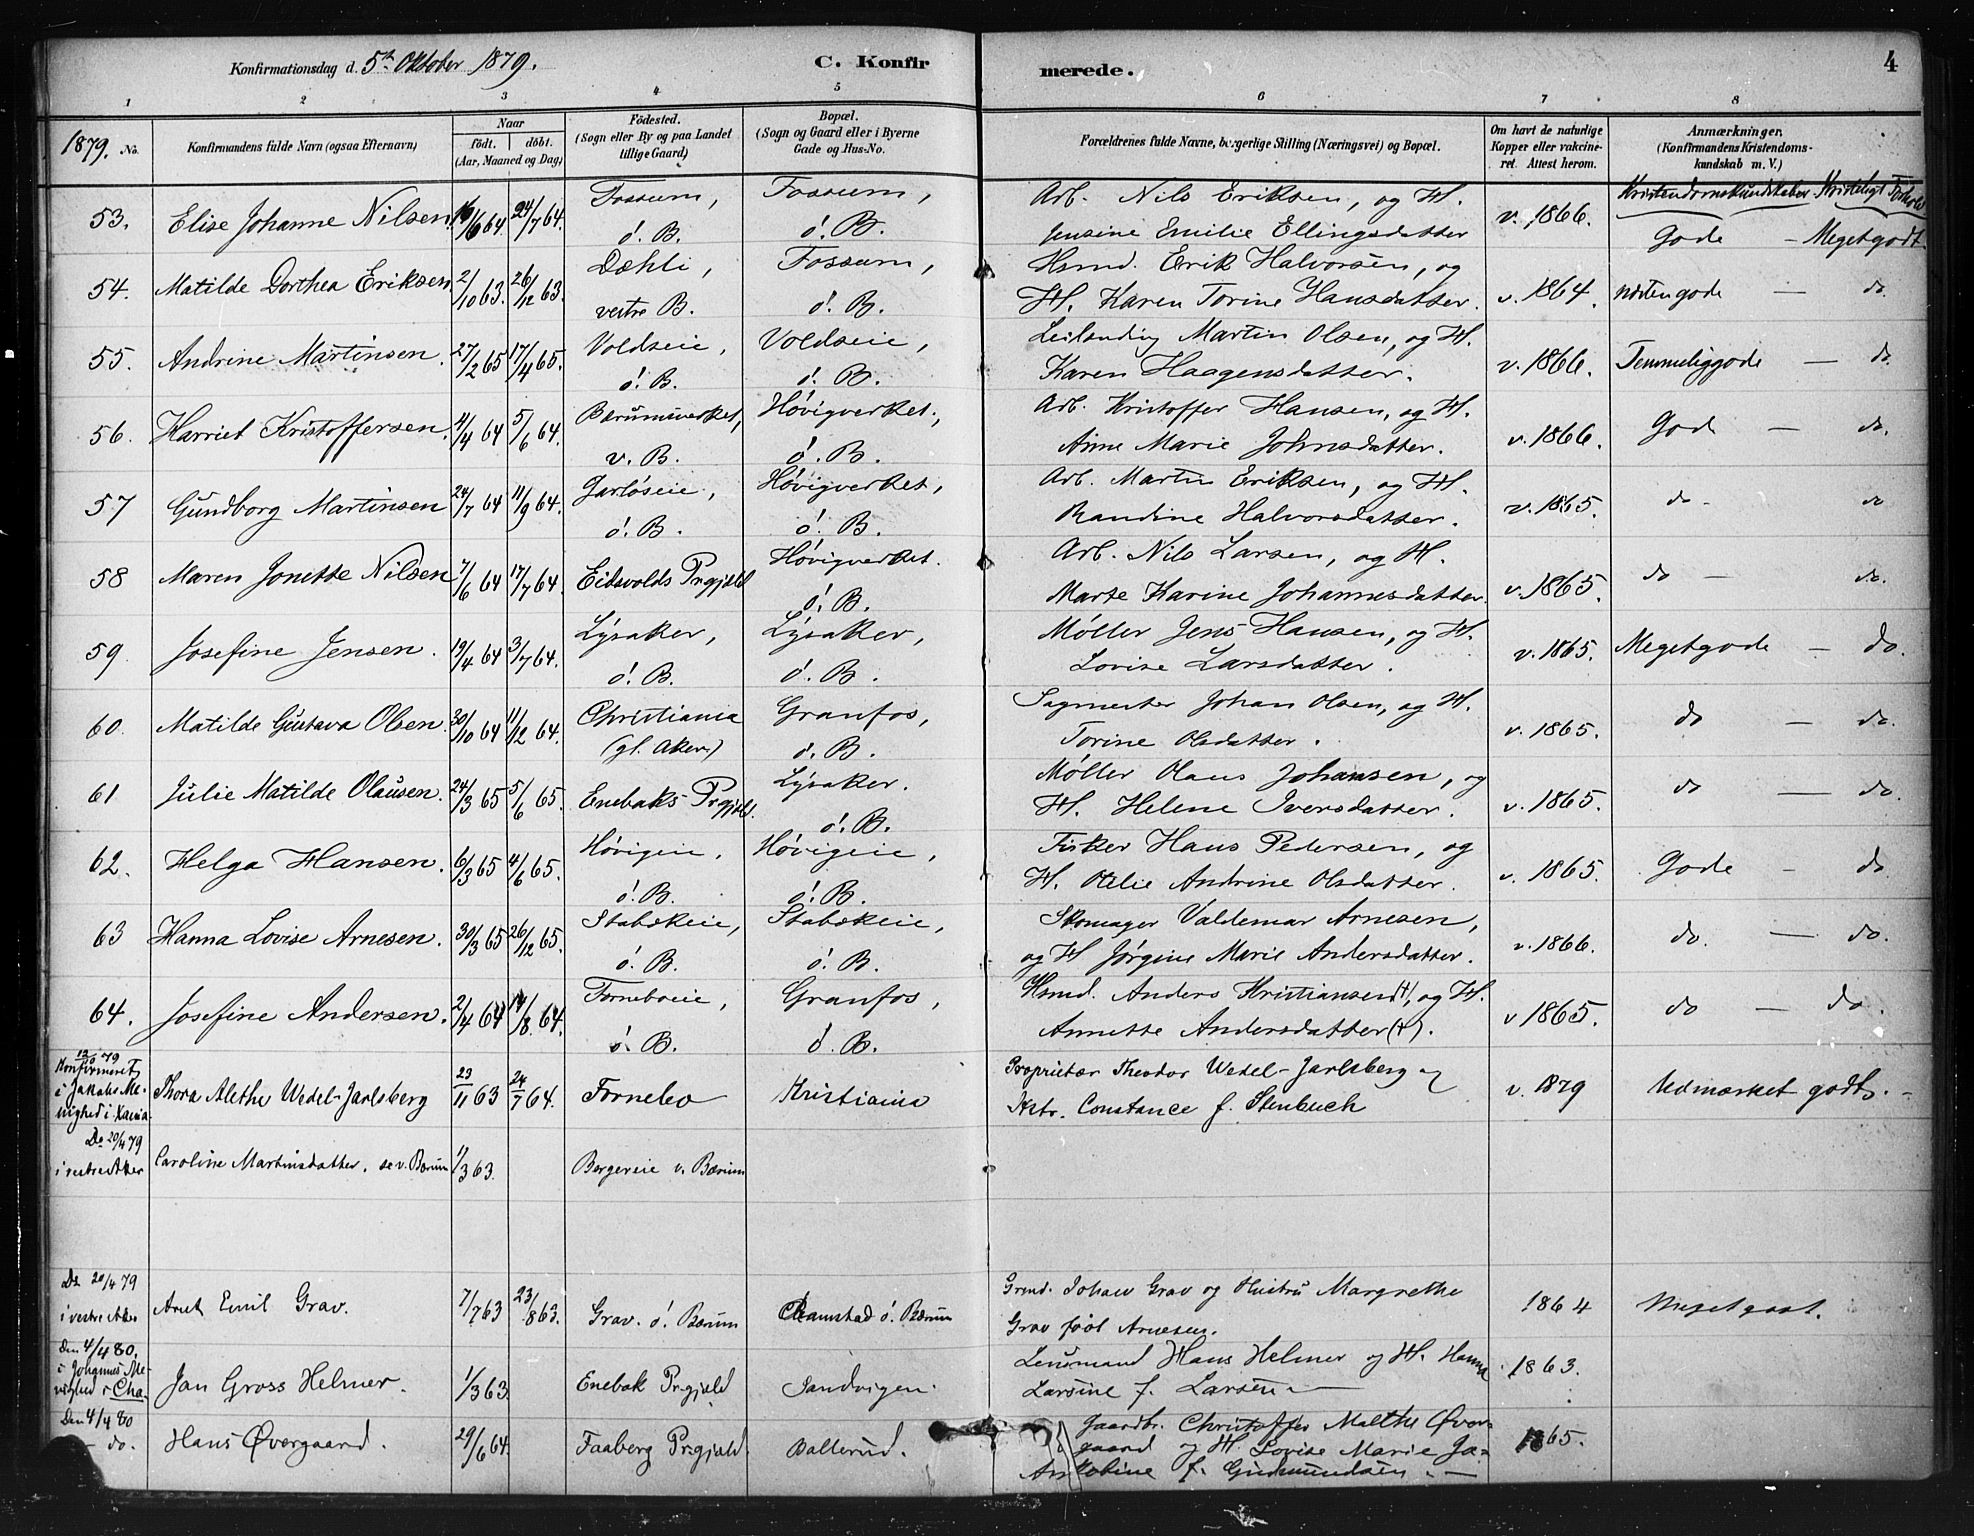 Konfirmationsdag d. 5te Oktober 1879. C. Konfirmerede. 4
1 2 3 4 5 6 7 8
1879. No. Konfirmandens fulde Navn (ogsaa Efternavn) Naar født. døbt. (Aar, Maaned og Dag) Fødested. (Sogn eller By og paa Landet tillige Gaard) Bopæl. (Sogn og Gaard eller i Byerne Gade og Hus-No. Forældrenes fulde Navne, borgerlige Stilling (Næringsvei) og Bopæl. Om havt de naturlige Kopper eller vaccineret. Attest herom. Anmærkninger. (Konfirmandens Kristendomskundskab m. V.)
Kristendomskundskaber Kristeligt Forhold
53. Elise Johanne Nilsen 16/6 64 24/7 64. Fossum, ö. B. Fossum, ö. B. Arb. Nils Eriksen, og H. Jensine Emilie Ellingsdatter v. 1866. Gode - Megetgodt
54. Matilde Dorthea Eriksen 2/10 63. 26/12 63. Dæhli, vestre B. Fossum, ö. B. Hsmd. Erik Halvorsen, og H. Karen Torine Hansdatter. v. 1864. næsten gode — do.
55. Andrine Martinsen. 27/2 65 17/4 65. Voldseie, ö. B. Voldseie, ö. B. Leilænding Martin Olsen, og H. Karen Haagensdatter. v. 1866. Temmeliggode — do
56. Harriet Kristoffersen. 11/4 64 5/6 64. Bærumsverket, v. B. Høvigverket, ö. B. Arb. Kristoffer Hansen, og H. Anne Marie Johnsdatter. v. 1866. Gode — do.
57 Gundborg Martinsen 24/7 64 11/9 64. Jarløseie, ö. B. Høvigverket, ö. B. Arb. Martin Eriksen, og H. Randine Halvorsdatter. v. 1865. do - do
58 Maren Jonette Nilsen 7/6 64 17/7 64. Eidsvolds Prgjeld Høvigverket. ö. B. Arb. Nils Larsen, og H. Marte Karine Johannesdatter. v. 1865. do — do.
59 Josefine Jensen. 19/4 64 3/7 64. Lysaker, ö. B. Lysaker, ö. B. Møller Jens Hansen, og H. Lovise Larsdatter. v. 1865. Megetgode — do.
60. Matilde Gustava Olsen. 30/10 64 11/12 64. Christiania (gl. Aker.) Granfos, ö. B. Sagmester Johan Olsen, og H. Torine Olsdatter. v. 1865. do — do.
61 Julie Matilde Olausen. 24/3 65 5/6 65. Enebaks Prgjeld. Lysaker. ö. B. Møller Olaus Johansen, og H. Helene Iversdatter. v. 1865. do — do.
62. Helga Hansen. 6/3 65 4/6 65. Høvigeie, ö. B. Høvigeie, ö. B. Fisker Hans Pedersen, og H. Otilie Andrine Olsdatter. v. 1865. Gode - do
63 Hanna Lovise Arnesen. 30/3 65 26/12 65. Stabekeie, ö. B. Stabekeie, ö. B. Skomager Valdemar Arnesen, og H Jørgine Marie Andersdatter. v. 1866. do. — do.
64. Josefine Andersen. 2/4 64 14/8 64. Forneboeie, ö. B. Granfos, ö. B. Hsmd. Anders Kristiansen(†), og H. Annette Andersdatter (†). v 1865. do — do.
Konfirmeret i Jakobs Menighed i Xania Thora Alethe Wedel-Jarlsberg 23/11 63 24/7 64. Fornebo Kristiania Proprietær Theodor Wedel-Jarlsberg og Hstr. Constance f. Stenbuch v. 1879 Udmærket godt. -
Do 20/4 79 i vestre Aker Caroline Martinsdatter. se v. Bærum 1/3 63. Bergereie v. Bærum
Do 20/4 79 i vestre Aker Arnt Emil Grav. 7/7 63 23/8 63. Grav. ö. Bærum Ramstad ö. Bærum Grmd. Johan Grav og Hustru Margrethe Grav født Arnesen. 1864 Meget godt.
Den 4/4 80. i Johannes Menighed i Cha. Jan Gross Helmer. 1/3 63. Enebak Prgjeld Sandvigen. Lensmand Hans Helmer og H. Hanna Larsine f. Larsen — 1863.
Den 4/4 80 — do. Hans Øvergaard. 29/6 64. Faaberg Prgjeld. Ballerud. Gaardbr. Christoffer Malthe Øvergaard og H. Lovise Marie Jakobine f. Gudmundsen. — 1865.